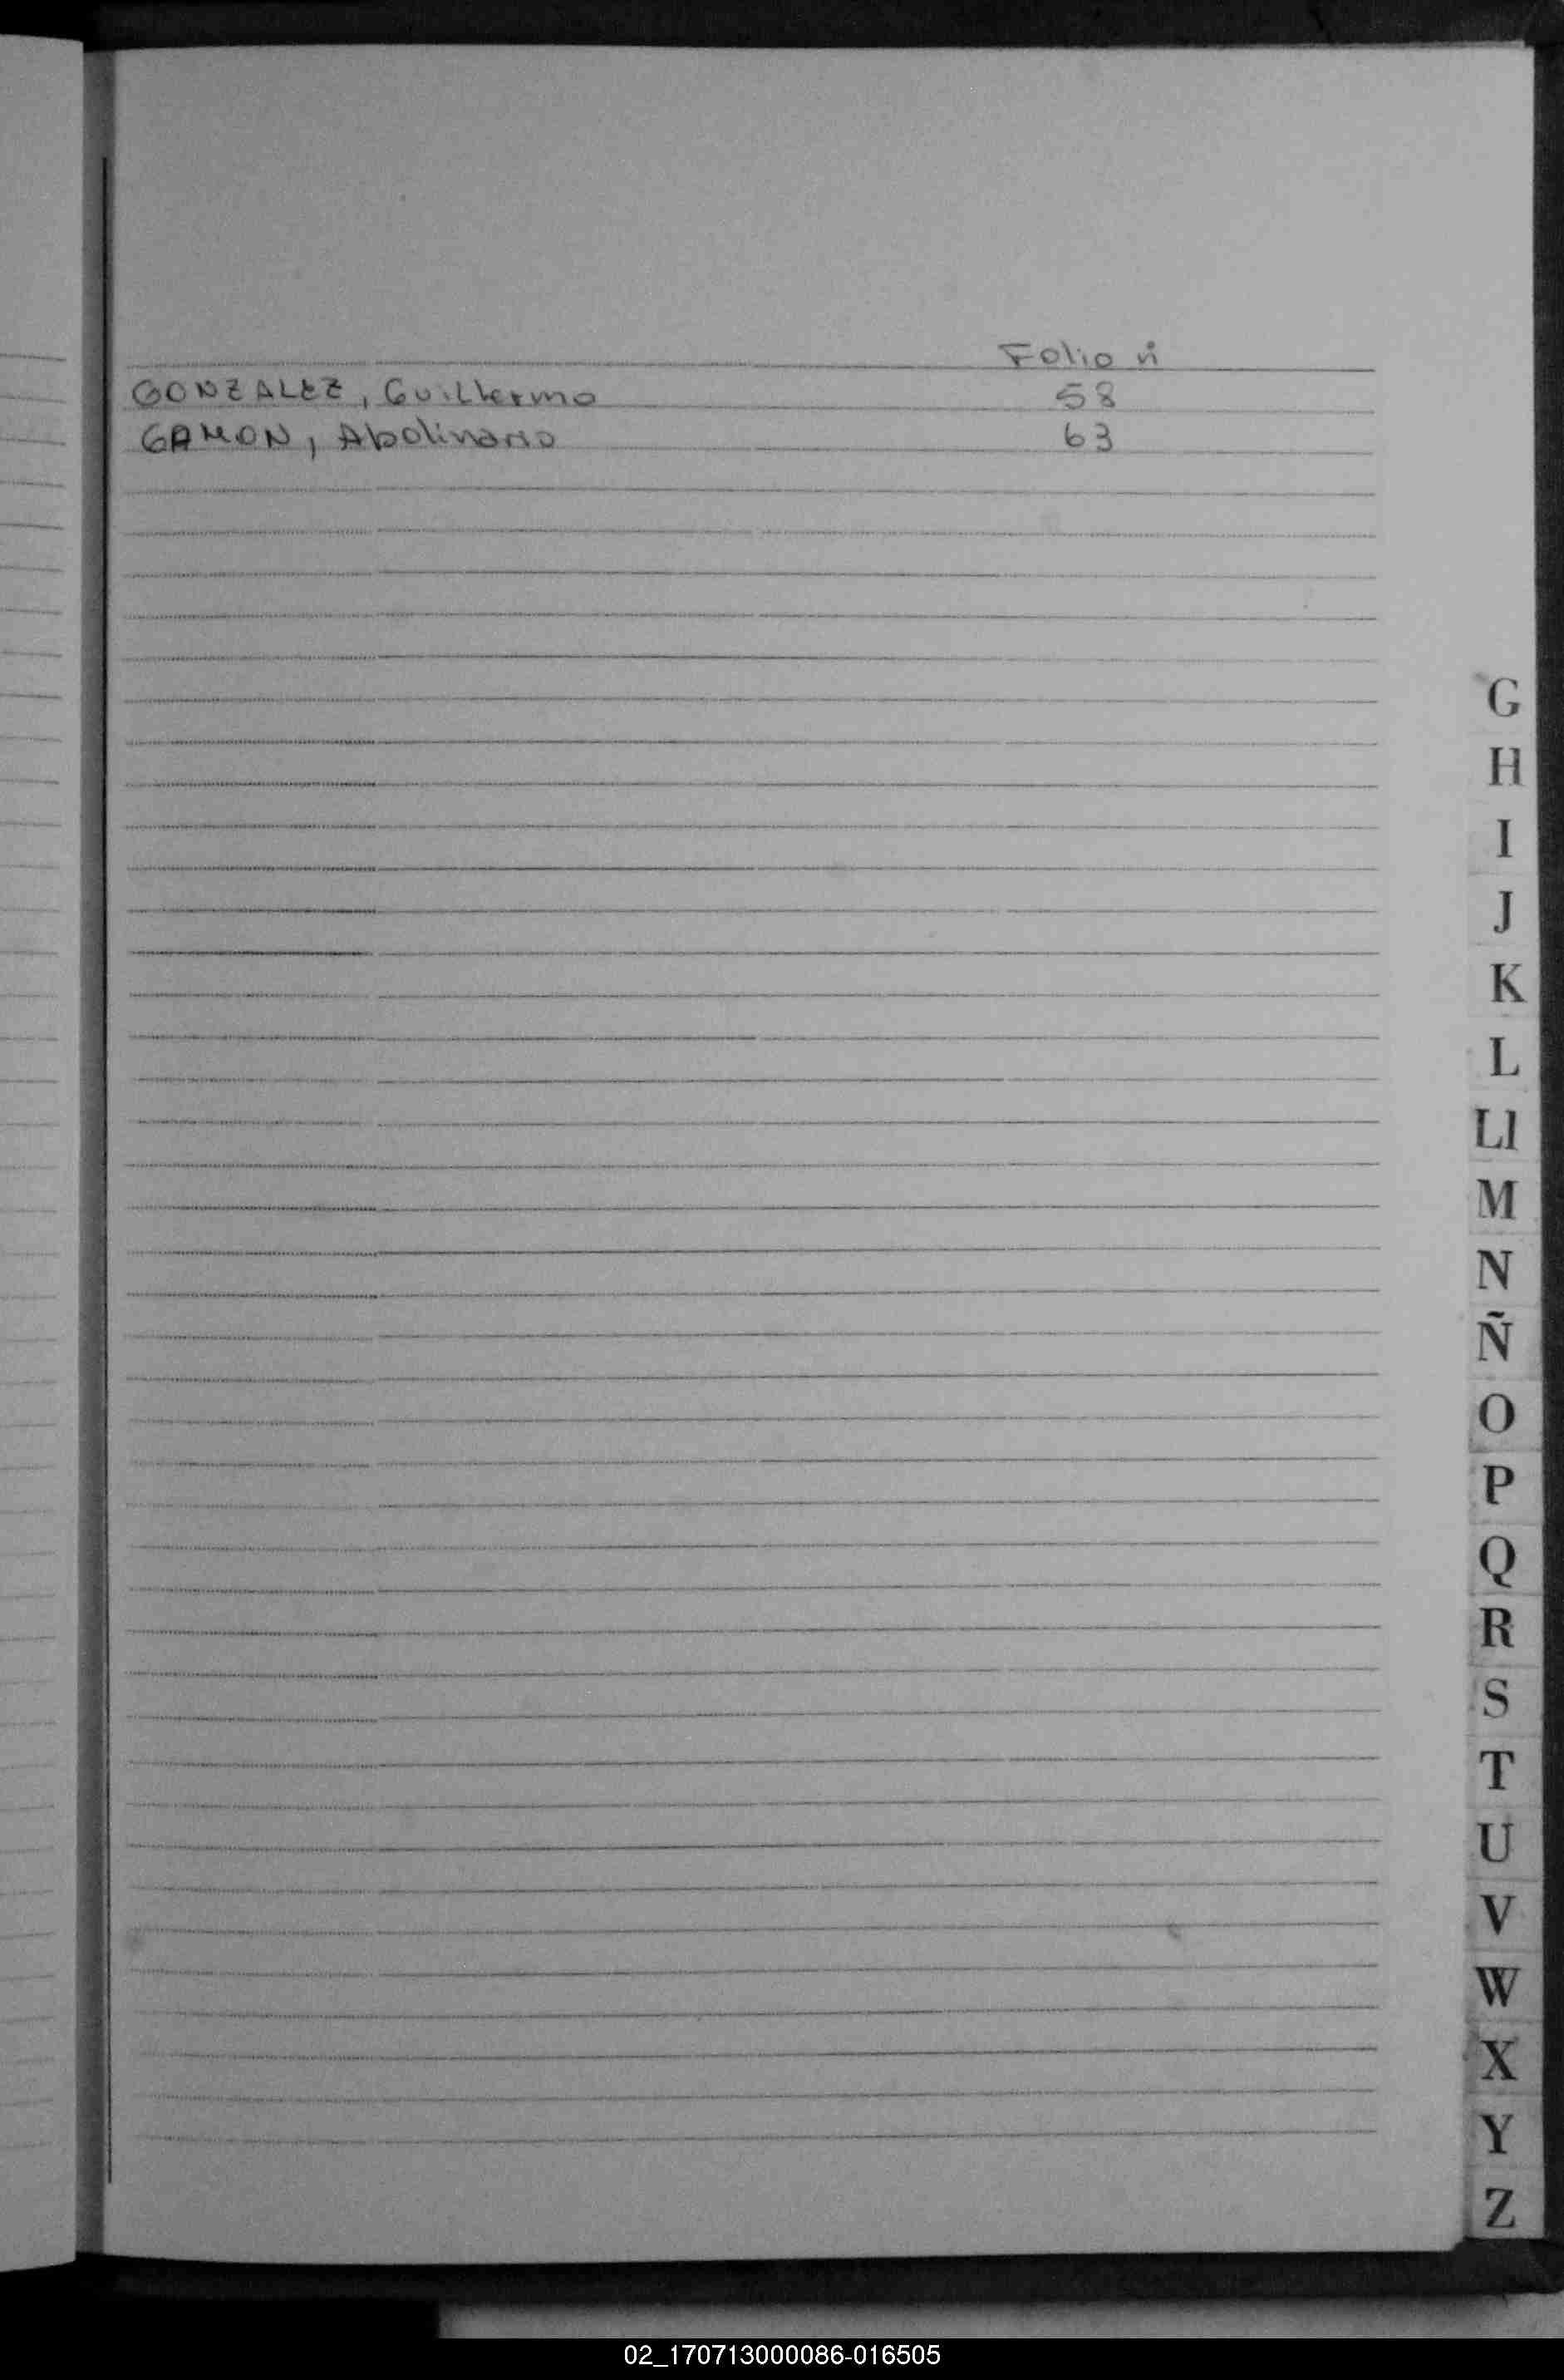 Folio nº
GONZALEZ, Guillermo 58
GAMON, Apolinario 63
G
H
I
J
K
L
Ll
M
N
Ñ
O
P
Q
R
S
T
U
V
W
X
Y
Z
02_170713000086-016505